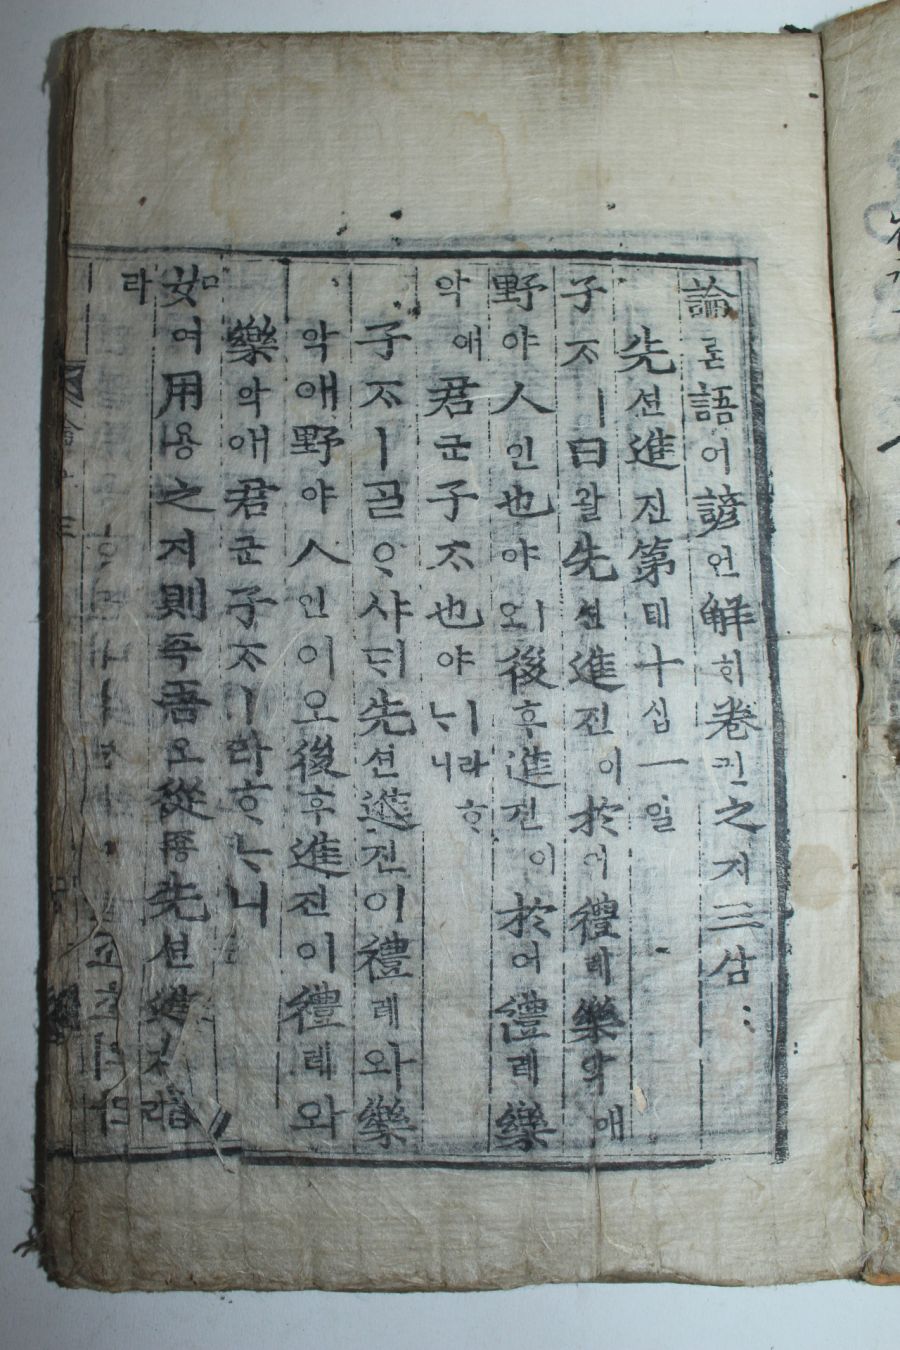 論론語어諺언解히卷권之지三삼
先션進진第뎨十십一일
子ᄌᆞㅣ曰왈先션進진이於어禮례樂악애
野야人인也야ㅣ오後후進진이於어禮례樂
악애君군子ᄌᆞ也야ㅣ라ᄒᆞᄂᆞ니
子ᄌᆞㅣ골ᄋᆞ샤ᄃᆡ先션進진이禮례와樂
악애野야人인이오後후進진이禮례와
樂악애君군子ᄌᆞㅣ라ᄒᆞᄂᆞ니
如여用용之지則즉吾오從죵先션進
라